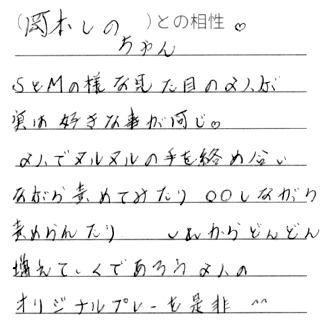 (岡本しの)との相性♡
ちゃん
SとMの様な見た目の2人が
実は好きな事が同じ♡
2人でヌルヌルの手を絡め合い
ながら責めてみたり○○しながら
責められたり これからどんどん
増えていくであろう2人の
オリジナルプレーを是非^^